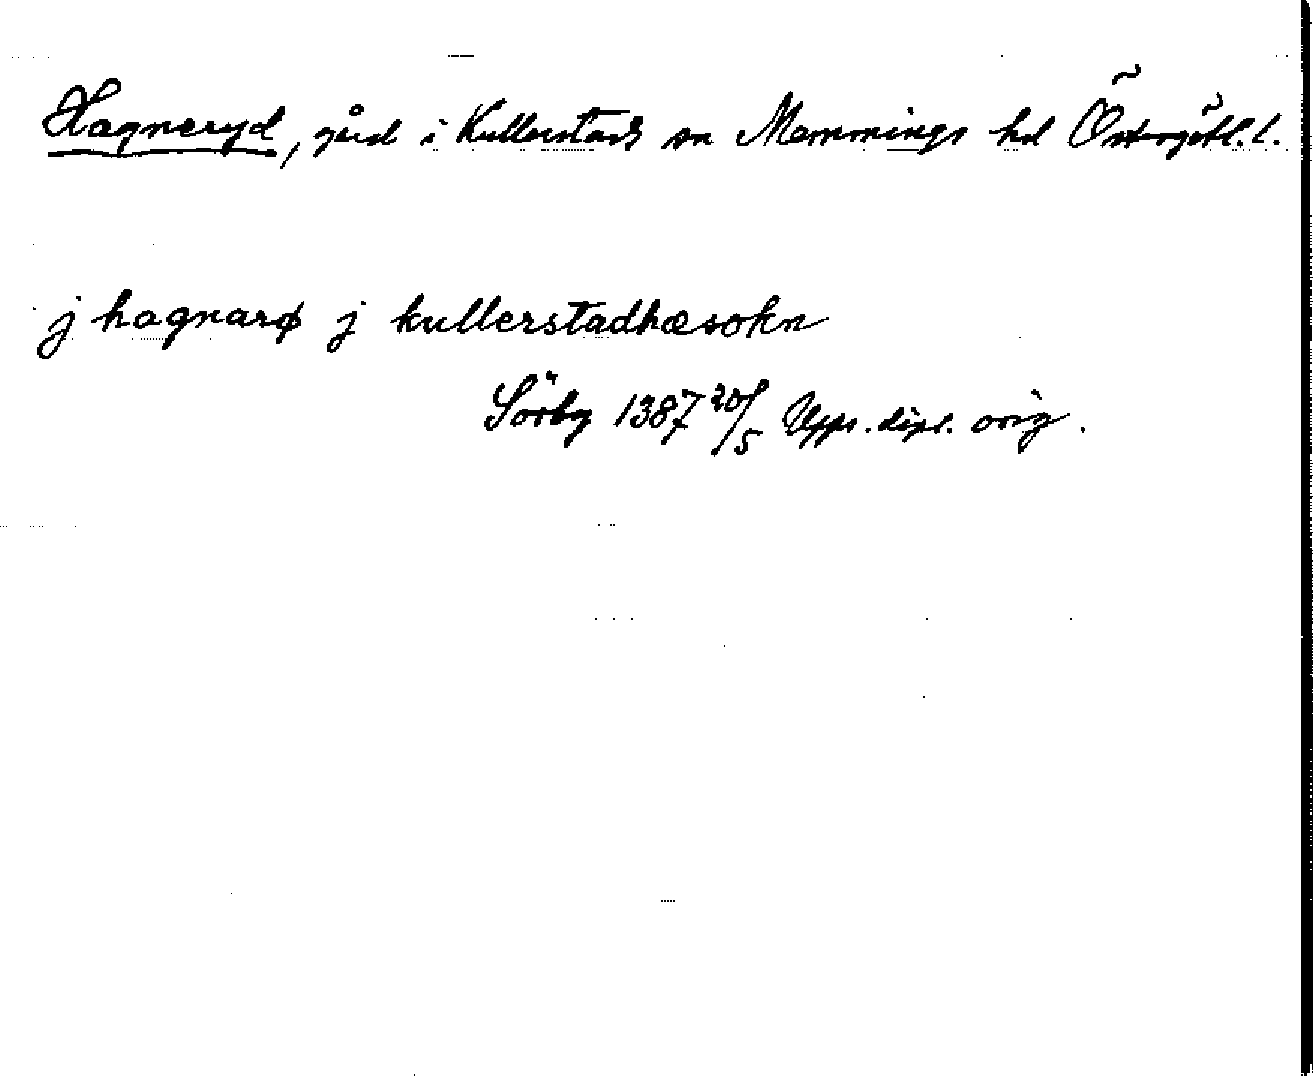 Hagneryd, gård i Kullerstads sn Memmings hd Östergötl. l.
j hagnarø j kullerstadhæsokn
Sörby 1387 20/5 Upps. dipl. orig.